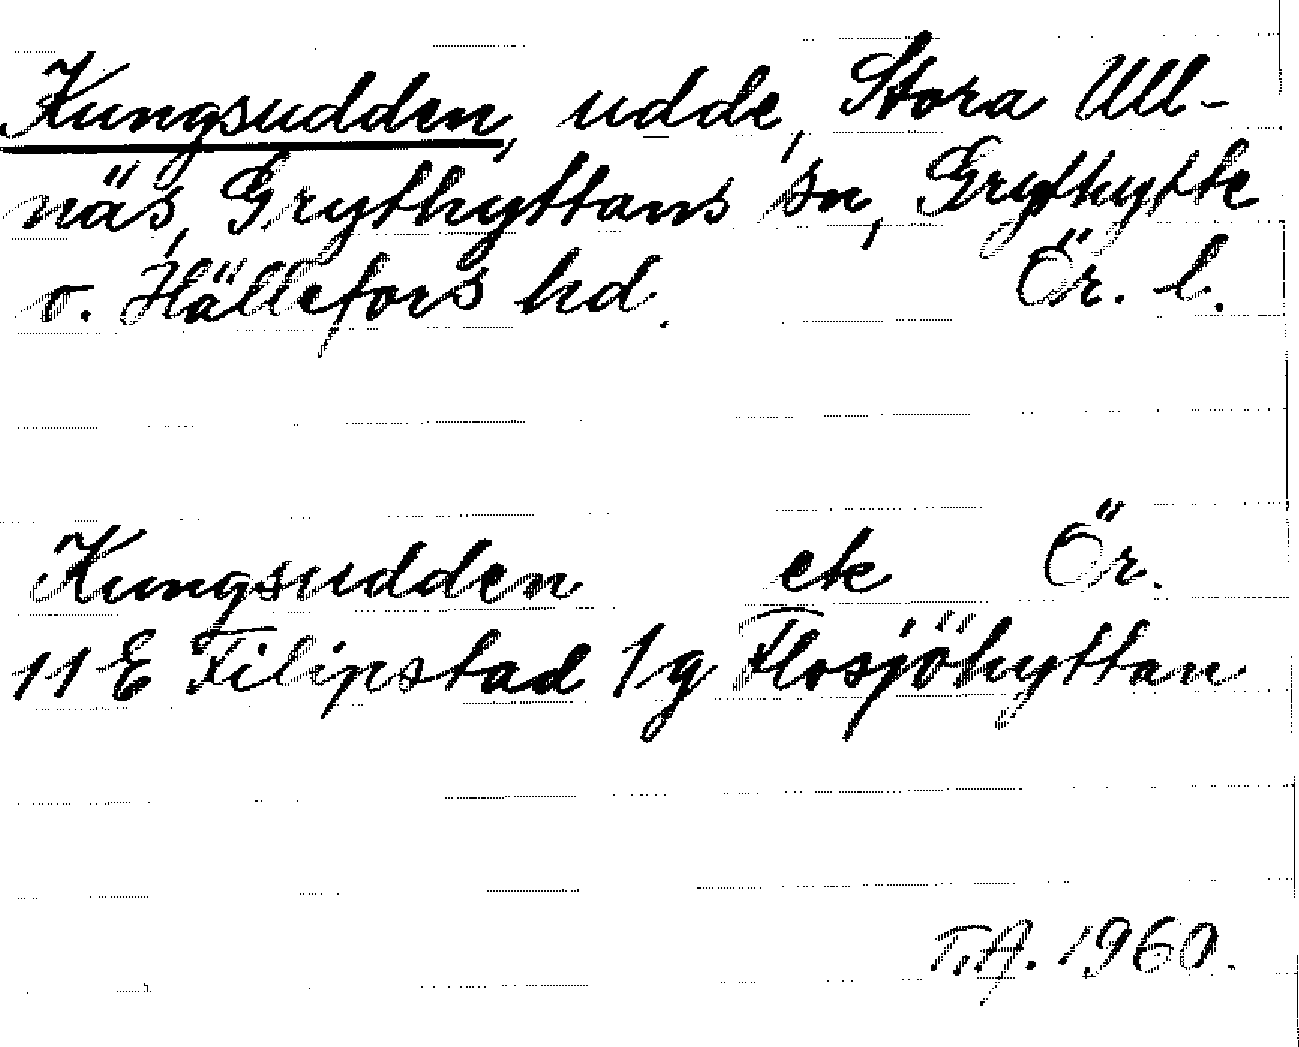 Kungsudden, udde, Stora Ull-
näs, Grythyttans sn, Grythytte
o. Hällefors hd. Ör. l.
Kungsudden ek Ör.
11 E Filipstad 1g Flosjöhyttan
T.A. 1960.